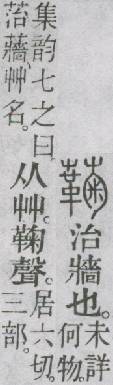 蘜治牆也。未詳
何物。
集韵七之曰
菭蘠、艸名。
从艸。鞠聲。居六切。
三部。